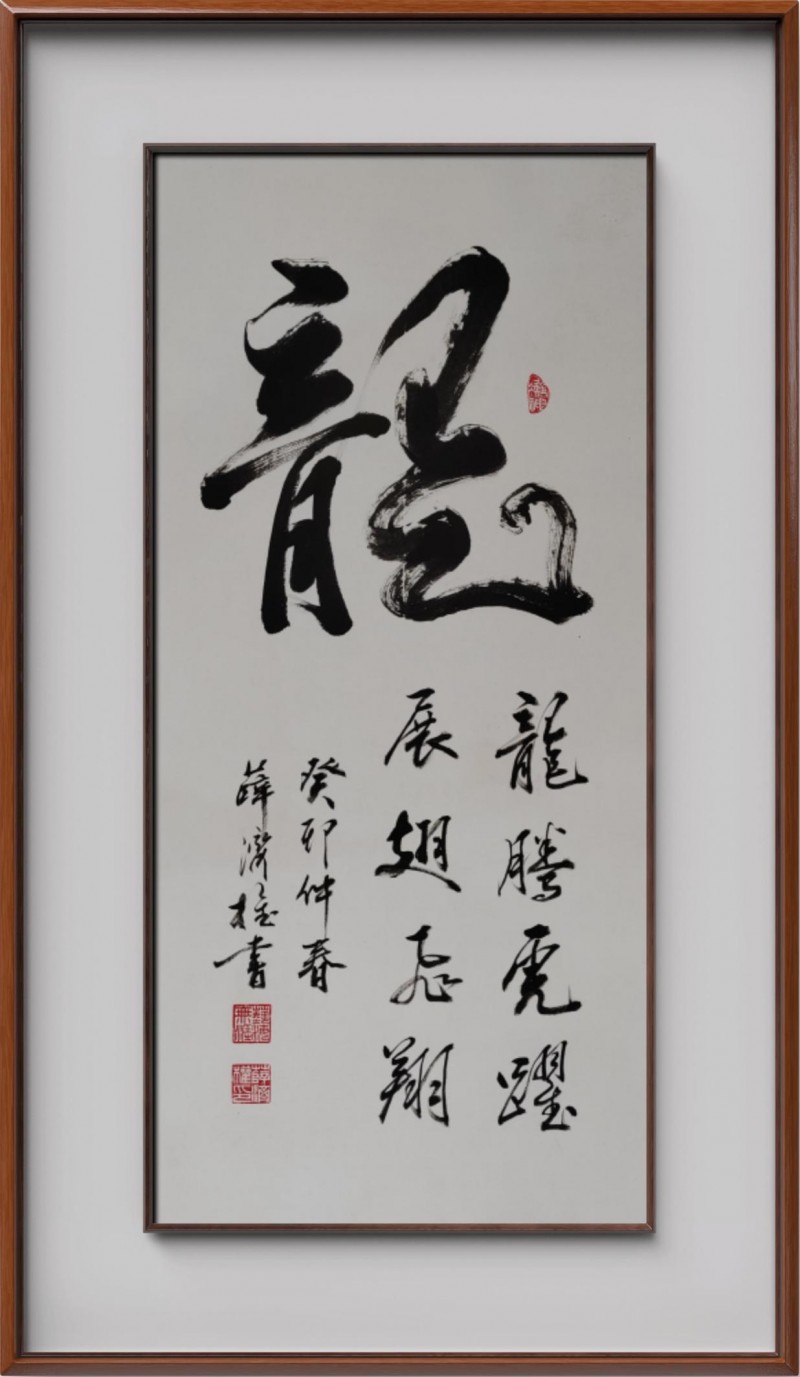 龍
龍騰虎躍
展翅飛翔
癸卯仲春
薛濟權書